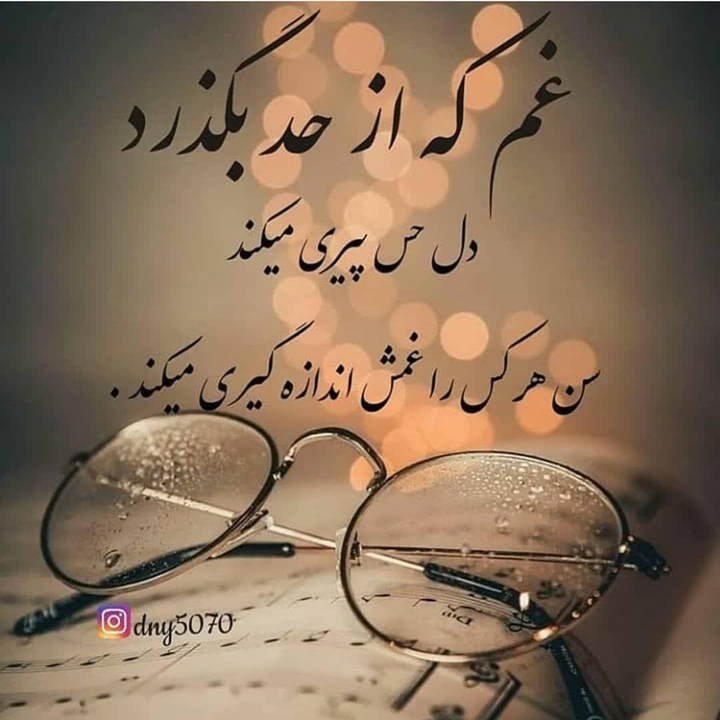 غم که از حد بگذرد
دل حس پیری میکند
سن هر کس را غمش اندازه گیری میکند .
dny5070